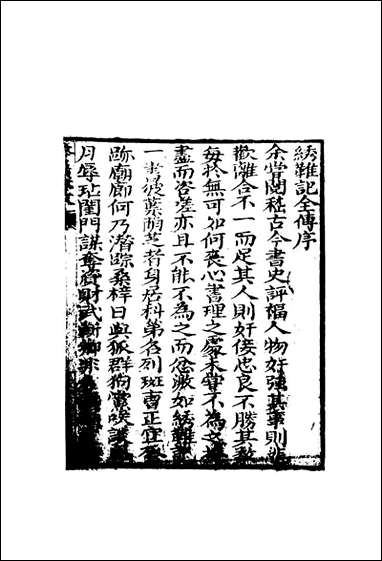 綉鞋記全傳序
余嘗閱稽古今書史評隲人物奸強其事則悲
歡離合不一而足其人則奸佞忠良不勝其數
每於無可如何喪心書理之處未嘗不為之
盡而咨嗟亦且不能不為之而忿激如綉鞋記
一書彼葉蔭芝者身居科第名列班曹正宜
跡廟廊何乃潛踪桑梓日與狐群狗黨唆
月辱玷閨門謀奪資財武斷鄉